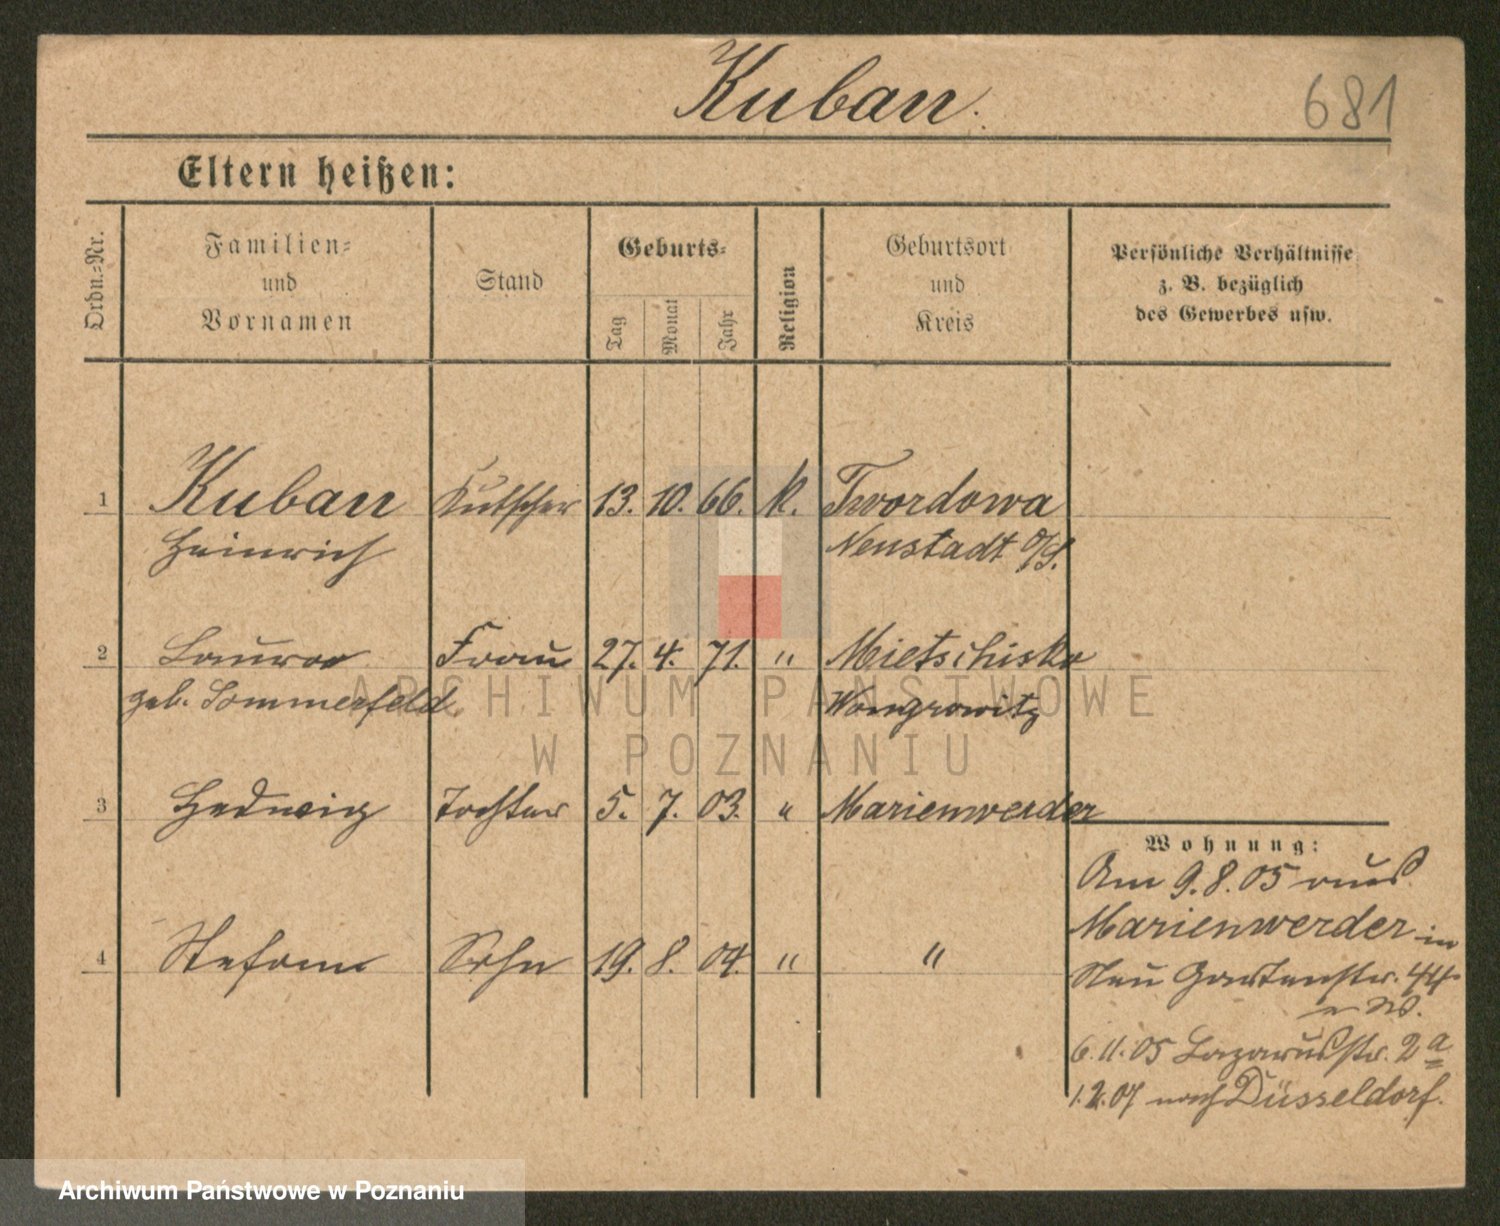 Kuban.
681
Eltern heißen:
Ordn.=Nr.
Familien=
und
Vornamen
Stand
Geburts=
Tag
Monat
Jahr
Religion
Geburtsort
und
Kreis
Persönliche Verhältnisse
z. B. bezüglich
des Gewerbes usw.
1 Kuban Kutscher 13. 10. 66. k. Twordowa
Heinrich Neustadt o/S.
2 Laura Frau 27. 4. 71. " Mietschisko
geb. Sommerfeld Wongrowitz
3 Hedwig Tochter 5. 7. 03. " Marienwerder
4 Stefan Sohn 19. 8. 04. " "
Wohnung:
Am 9.8.05 aus
Marienwerder in
Neu Gartenstr. 44
6.11.05 Lazarusstr. 2a
1.2.07 nach Düsseldorf.
ARCHIWUM PAŃSTWOWE
W POZNANIU
Archiwum Państwowe w Poznaniu